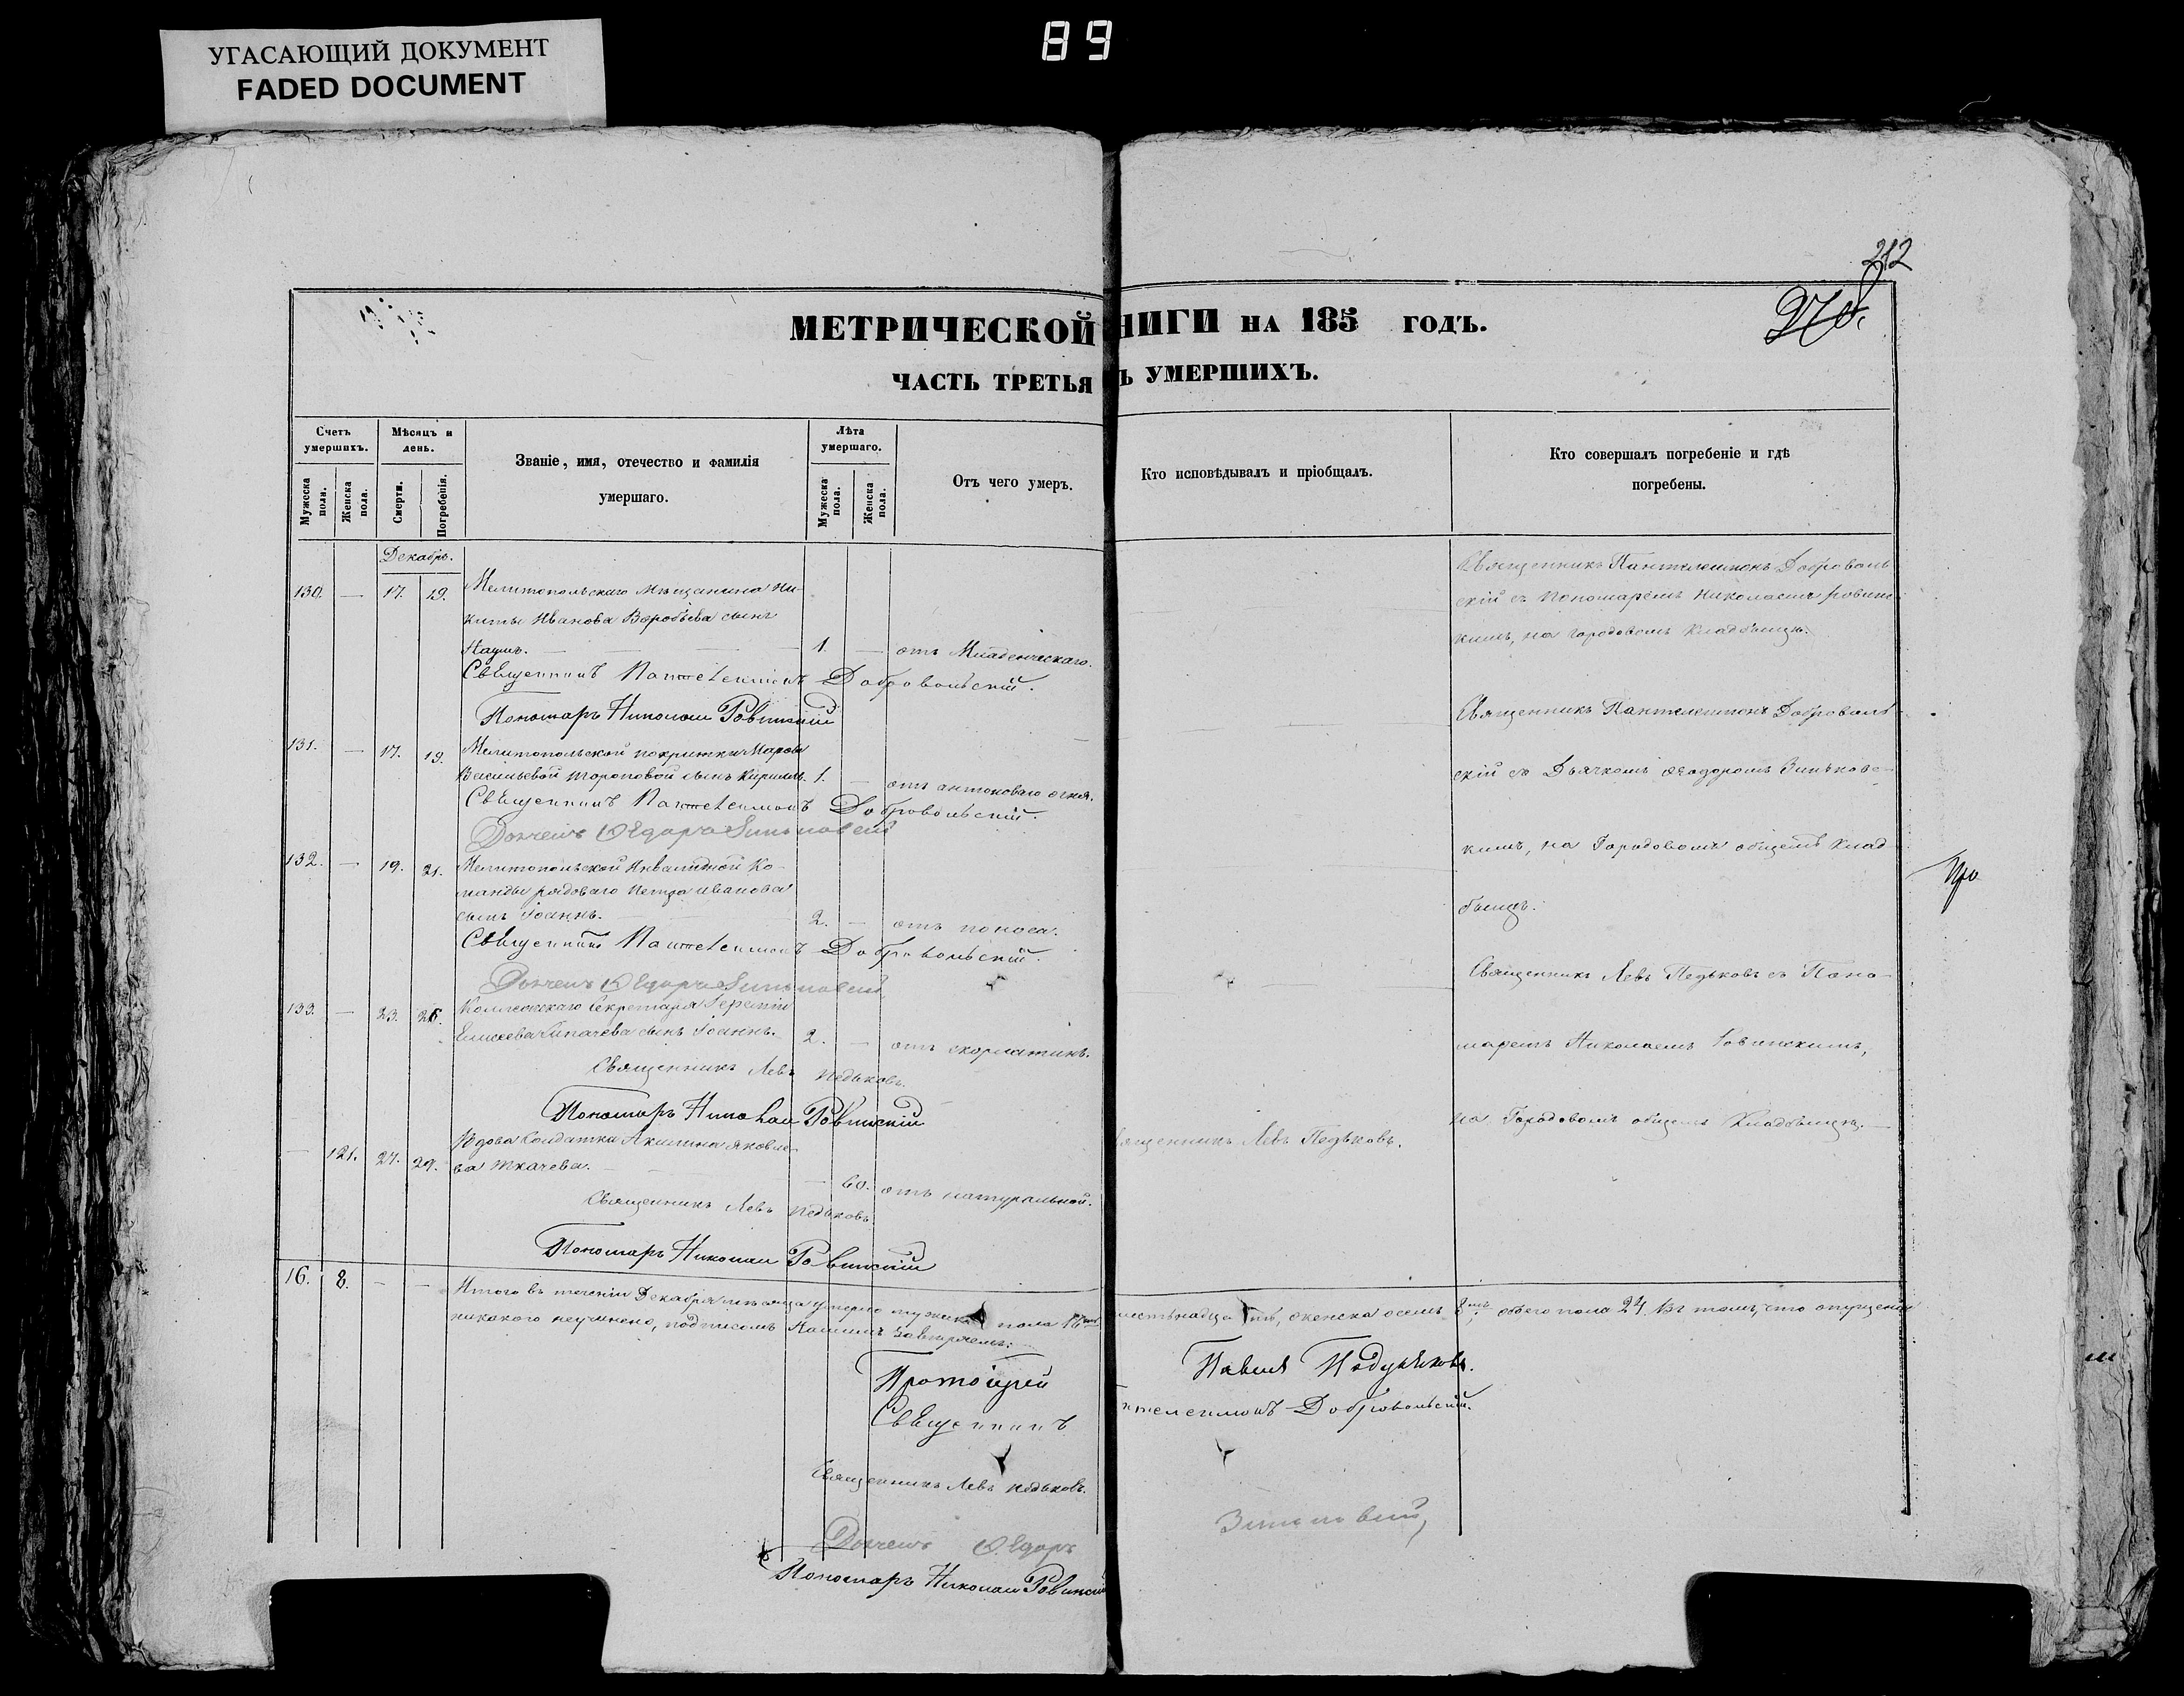 УГАСАЮЩИЙ ДОКУМЕНТ
FADED DOCUMENT
89
212
270.
МЕТРИЧЕСКОЙ НИГИ НА 185 ГОДЪ.
ЧАСТЬ ТРЕТЬЯ Ъ УМЕРШИХЪ.
Счетъ умершихъ.
Мужеска поли.
Женска пола.
Мѣсяцъ и день.
Смерти.
Погребенія.
Званіе, имя, отечество и фамилія
умершаго.
Лѣта умершаго.
Мужеска пола.
Женска пола.
Отъ чего умеръ.
Кто исповѣдывалъ и пріобщалъ.
Кто совершалъ погребеніе и гдѣ
погребены.
Декабрь.
130. — 17. 19. Мелитопольскаго Мѣщанина Ни-
киты Иванова Воробьева сынъ
Наумъ. — 1. — отъ Младенческаго.
Священникъ Пантелеимонъ Добровольскій.
Пономарь Николай Ровинскій
Священникъ Пантелеимонъ Доброволь
скій съ Пономаремъ Николаемъ Ровинс
кимъ, на городовомъ Кладбищѣ.
131. — 17. 19. Мелитопольской
Васильевой Тороповой сынъ Кириллъ. 1. — отъ антонова огня.
Священникъ Пантелеимонъ Добровольскій.
Дьячекъ Ѳедоръ Зиньковскій
Священникъ Пантелеимонъ Доброволь
скій съ Дьячкомъ Ѳеодоромъ Зиньковс-
кимъ, на Городовомъ общемъ Клад
бищѣ.
132. — 19. 21. Мелитопольской Инвалидной Ко-
манды рядоваго Петра Иванова
сынъ Іоаннъ. — 2. — отъ поноса.
Священникъ Пантелеимонъ Добровольскій.
Дьячекъ Ѳедоръ Зиньковскій
Про
133. — 23. 26. Коллежскаго Секретаря
Елисеева сынъ Іоаннъ. 2. — отъ скорлатины.
Священникъ Левъ Педьковъ.
Пономарь Николай Ровинскій
Священникъ Левъ Педьковъ съ Поно-
маремъ Николаемъ Ровинскимъ,
на Городовомъ общемъ Кладбищѣ. —
— 121. 27. 29. Вдова Солдатка Акилина Яковле-
ва Ткачева. — 60. отъ натуральной.
Священникъ Левъ Педьковъ
Пономарь Николай Ровинскій
ященникъ Левъ Педьковъ.
16. 8. — — Итого въ теченіи Декабря мѣсяца умерло мужеска пола 16 шестьнадца ть, женска осемь 8 обоего пола 24. Въ томъ, что опущенія
никакого неучинено, подписомъ Нашимъ завѣряемъ:
Протоіерей Павелъ
Священникъ нтелеимонъ Добровольскій.
Священникъ Левъ Педьковъ.
Дьячекъ Ѳедоръ Зиньковскій,
Пономарь Николай Ровинскій